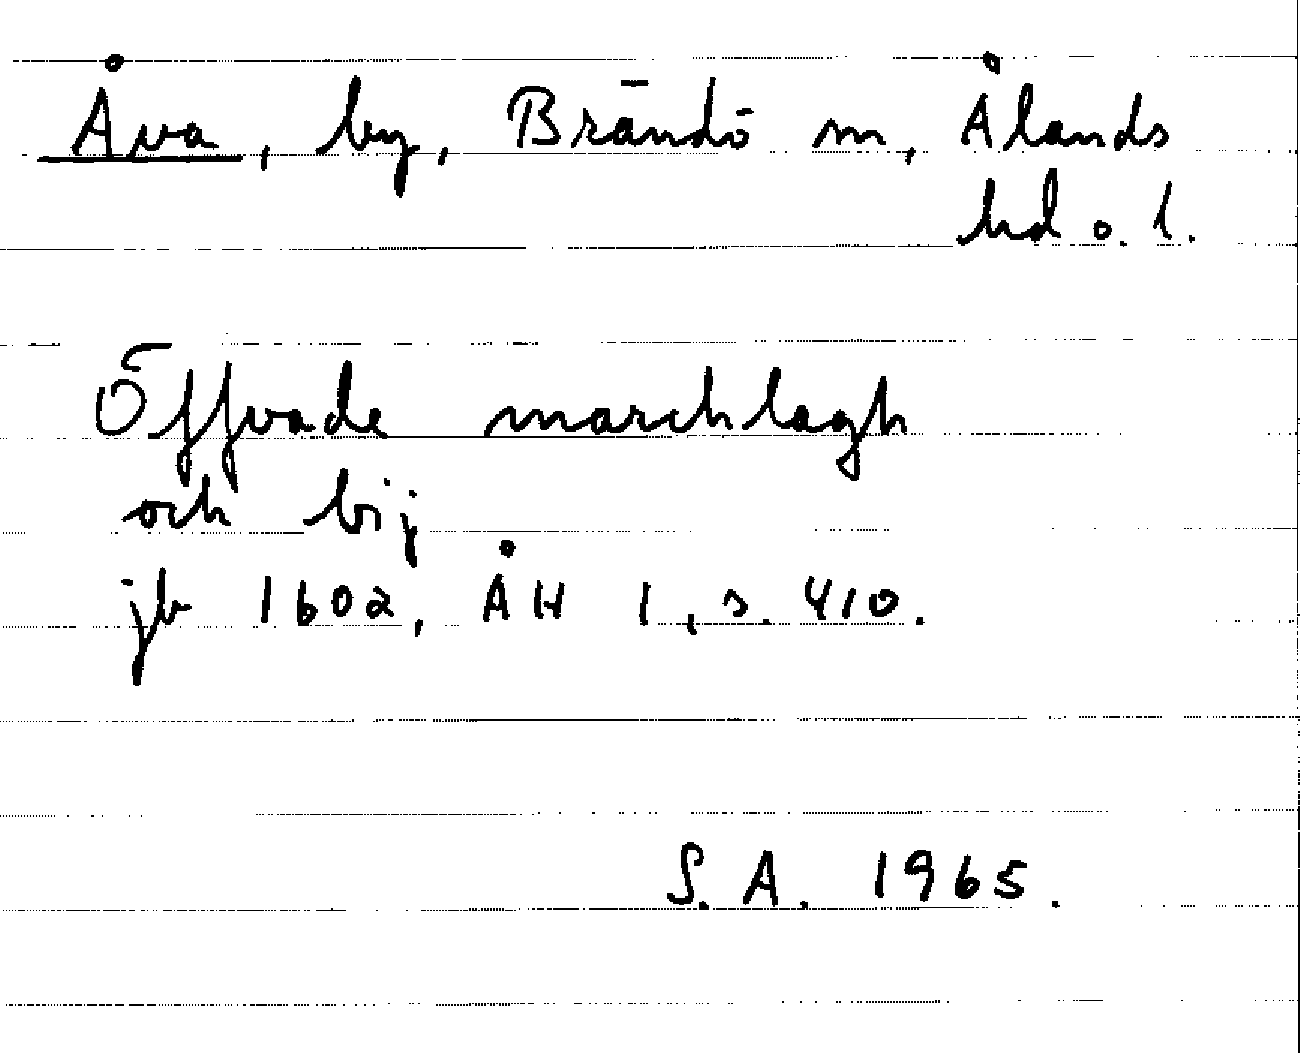 Åva, by, Brändö sn, Ålands
hd o. l.
Öffvade marchlagh
och bij
jb 1602, ÅH 1, s. 410.
S. A. 1965.